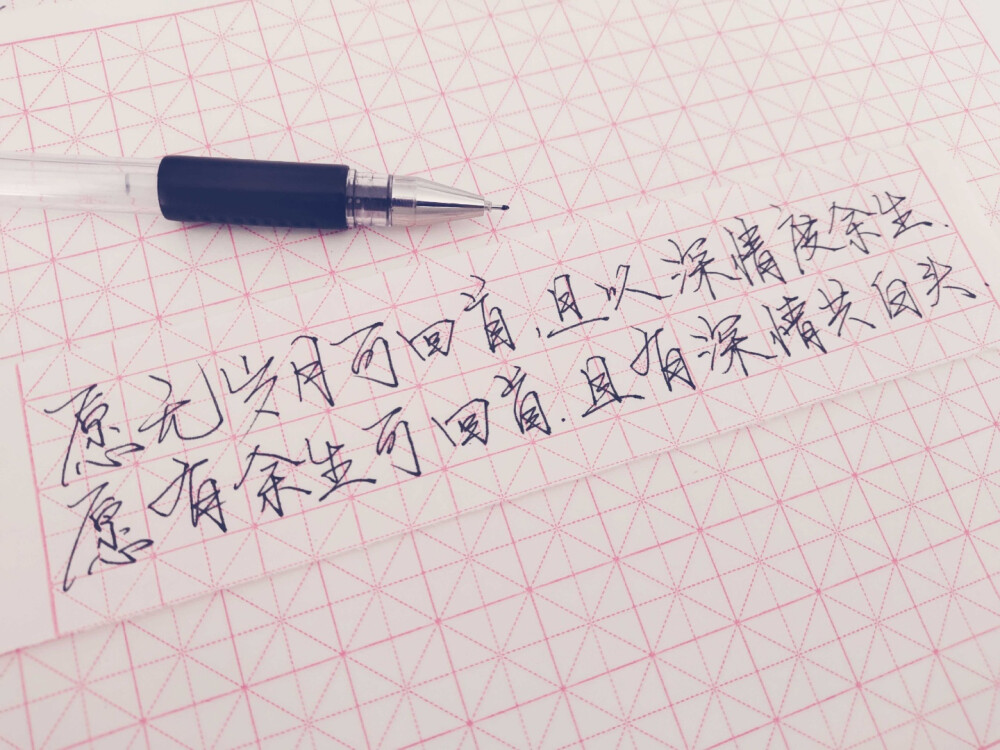 愿无岁月可回首.且以深情度余生.
愿有余生可回首.且有深情共白头.